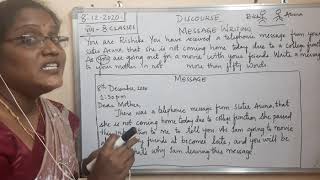 8-12-2020
DISCOURSE
VIII - B CLASSES
MESSAGE WRITING
Aruna
You are Rishika. You have received a telephone message from your
sister Aruna, that she is not coming home today due to a college function
As you are going out for a movie with your friends. Write a message
to your mother in not more than fifty words.
MESSAGE
8th December, 2020
1:30 pm
Dear Mother,
There was a telephonic message from sister Aruna, that
she is not coming home today due to college function, she passed
the information to me to tell you. As I am going to movie
my friends it becomes late, and you will be
why I am leaving this message